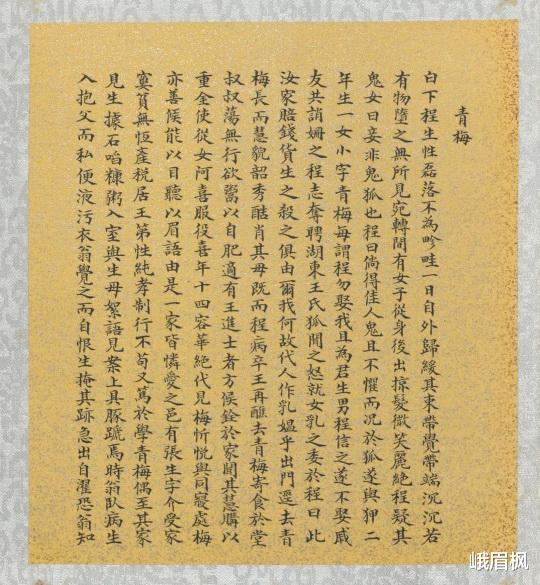 青梅
白下程生性磊落不為畛畦一日自外歸緩其束帶覺帶端沉沉若
有物墮之無所見宛轉間有女子從身後出掠髮微笑麗絕程疑其
鬼女曰妾非鬼狐也程曰倘得佳人鬼且不懼而況於狐遂與狎二
年生一女小字青梅每謂程勿娶我且為君生男程信之遂不娶戚
友共誚姍之程志奪聘湖東王氏狐聞之怒就女乳之委於程曰此
汝家賠錢貨生之殺之俱由爾我何故代人作乳媼乎出門逕去青
梅長而慧貌韶秀酷肖其母既而程病卒王再醮去青梅寄食於堂
叔叔蕩無行欲鬻以自肥適有王進士者方候銓於家聞其慧購以
重金使從女阿喜服役喜年十四容華絕代見梅忻悅與同寢處梅
亦善候能以目聽以眉語由是一家皆憐愛之邑有張生字介受家
窶貧無恆產稅居王第性純孝制行不苟又篤於學青梅偶至其家
見生據石啗糠粥入室與生母絮語見案上具豚蹏焉時翁臥病生
入抱父而私便液污衣翁覺之而自恨生掩其跡急出自濯恐翁知
峨眉枫